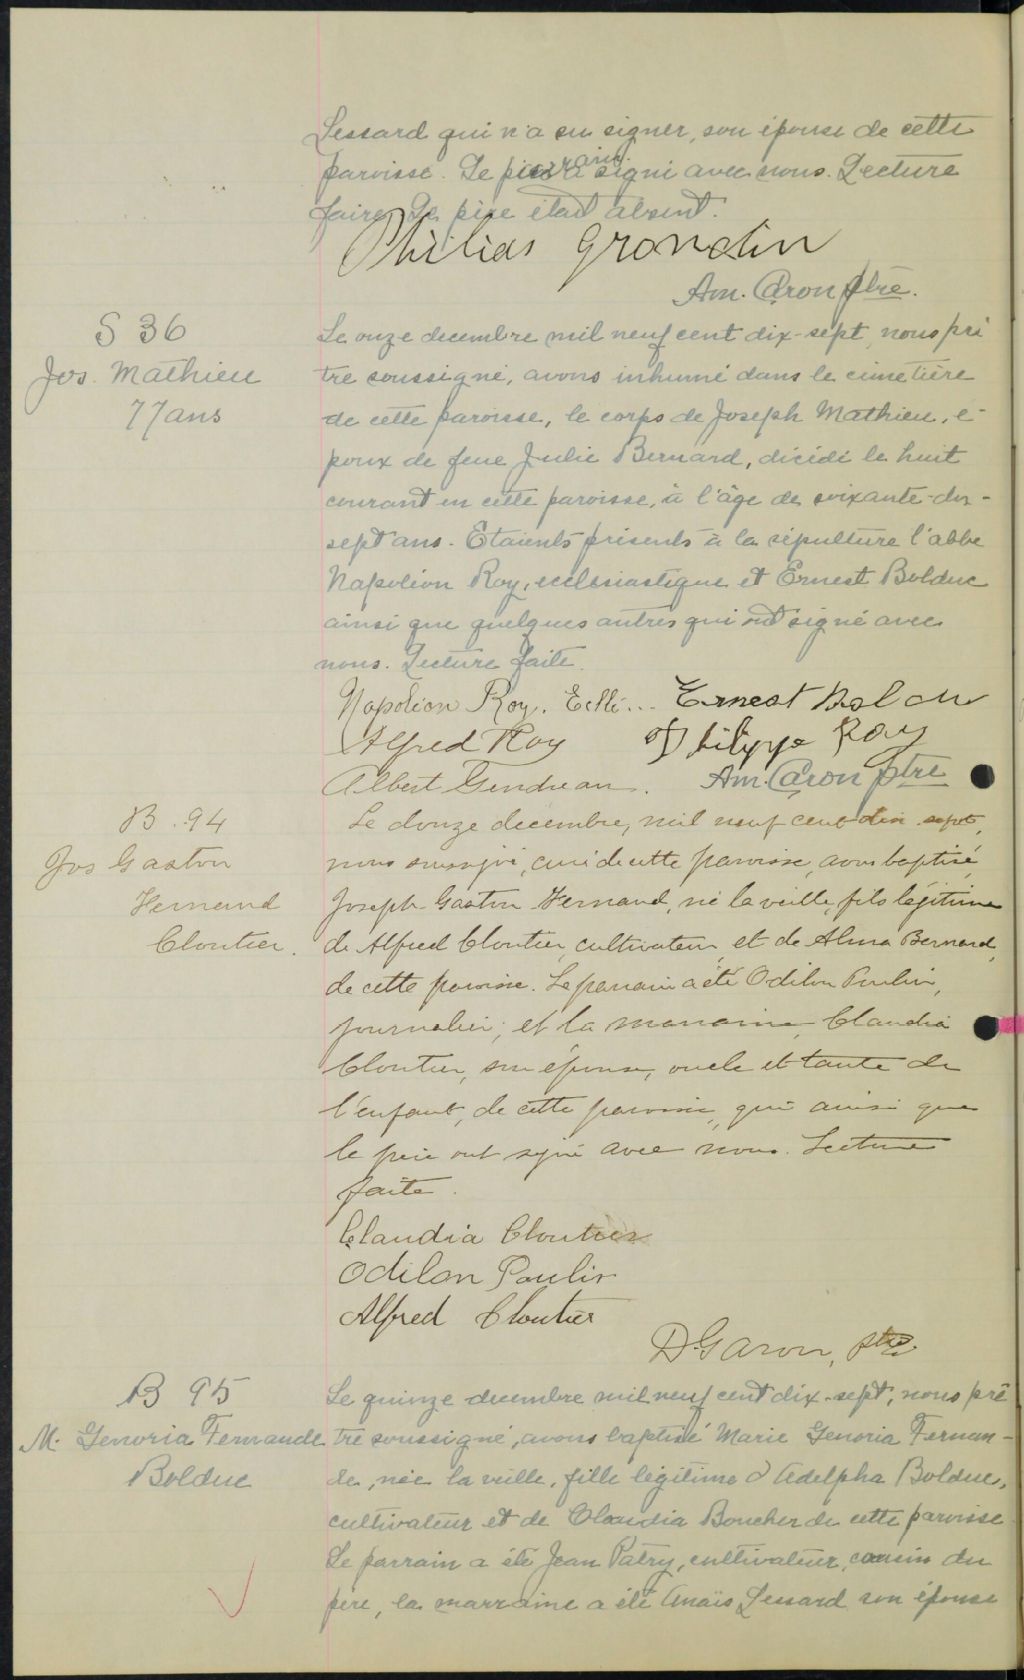 Lessard qui n'a su signer, son épouse de cette
paroisse. Le parrain a signé avec nous. Lecture
faite. Le père était absent.
Philias Grondin
Am. Caron ptre.
S 36
Jos. Mathieu
77 ans
Le onze decembre mil neuf cent dix-sept, nous prê
tre soussigné, avons inhumé dans le cimetière
de cette paroisse, le corps de Joseph Mathieu, é-
poux de feue Julie Bernard, décédé le huit
courant en cette paroisse, à l'âge de soixante-dix-
sept ans. Etaients présents à la sépulture l'abbé
Napoléon Roy, ecclésiastique et Ernest Bolduc
ainsi que quelques autres qui ont signé avec
nous. Lecture faite.
Napoléon Roy. Ecclé... Ernest Bolduc
Alfred Roy Philippe Roy
Albert Gendreau. Am. Caron ptre
B. 94
Jos Gaston
Fernand
Cloutier.
Le douze decembre, mil neuf cent dix sept,
nous soussigné, curé de cette paroisse, avons baptisé
Joseph Gaston Fernand, né la veille, fils légitime
de Alfred Cloutier, cultivateur, et de Alma Bernard,
de cette paroisse. Le parrain a été Odilon Poulin,
journalier, et la marraine, Claudia
Cloutier, son épouse, oncle et tante de
l'enfant, de cette paroisse, qui ainsi que
le père ont signé avec nous. Lecture
faite.
Claudia Cloutier
Odilon Poulin
Alfred Cloutier
D. Garon, ptre
B 95
M. Genoria Fernande
Bolduc
Le quinze decembre mil neuf cent dix-sept, nous prê
tre soussigné, avons baptisé Marie Genoria Fernan-
de, née la veille, fille légitime d'Adelpha Bolduc,
cultivateur et de Claudia Boucher de cette paroisse.
Le parrain a été Jean Patry, cultivateur, cousin du
père, la marraine a été Anaïs Lessard son épouse